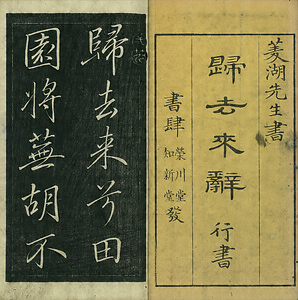 菱湖先生書
歸去來辭 行書
書肆 榮川堂 知新堂 發
歸去来兮田
園将蕪胡不